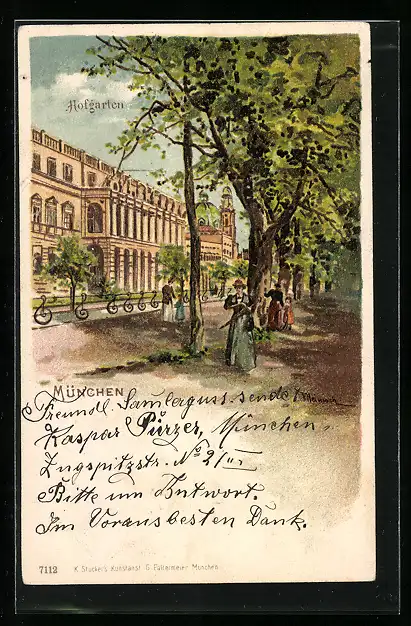 Hofgarten
MÜNCHEN
Freundl. Samlerguss. sende
Kaspar Pürzer, München,
Zugspitzstr. No 2/III
Bitte um Antwort.
Im Voraus besten Dank.
7112 K. Stücker's Kunstanst. G. Paltermeier München